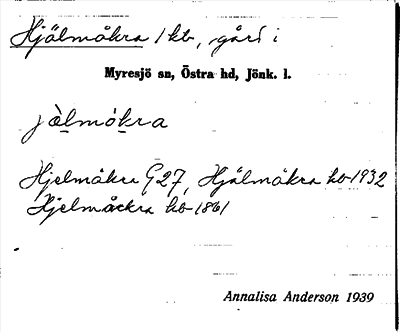 Hjälmåkra 1 kb, gård i
Myresjö sn, Östra hd, Jönk. l.
jàlmòkra
Hjelmåkra G27, Hjälmåkra kb 1932
Hjelmåckra kb 1861
Annalisa Anderson 1939